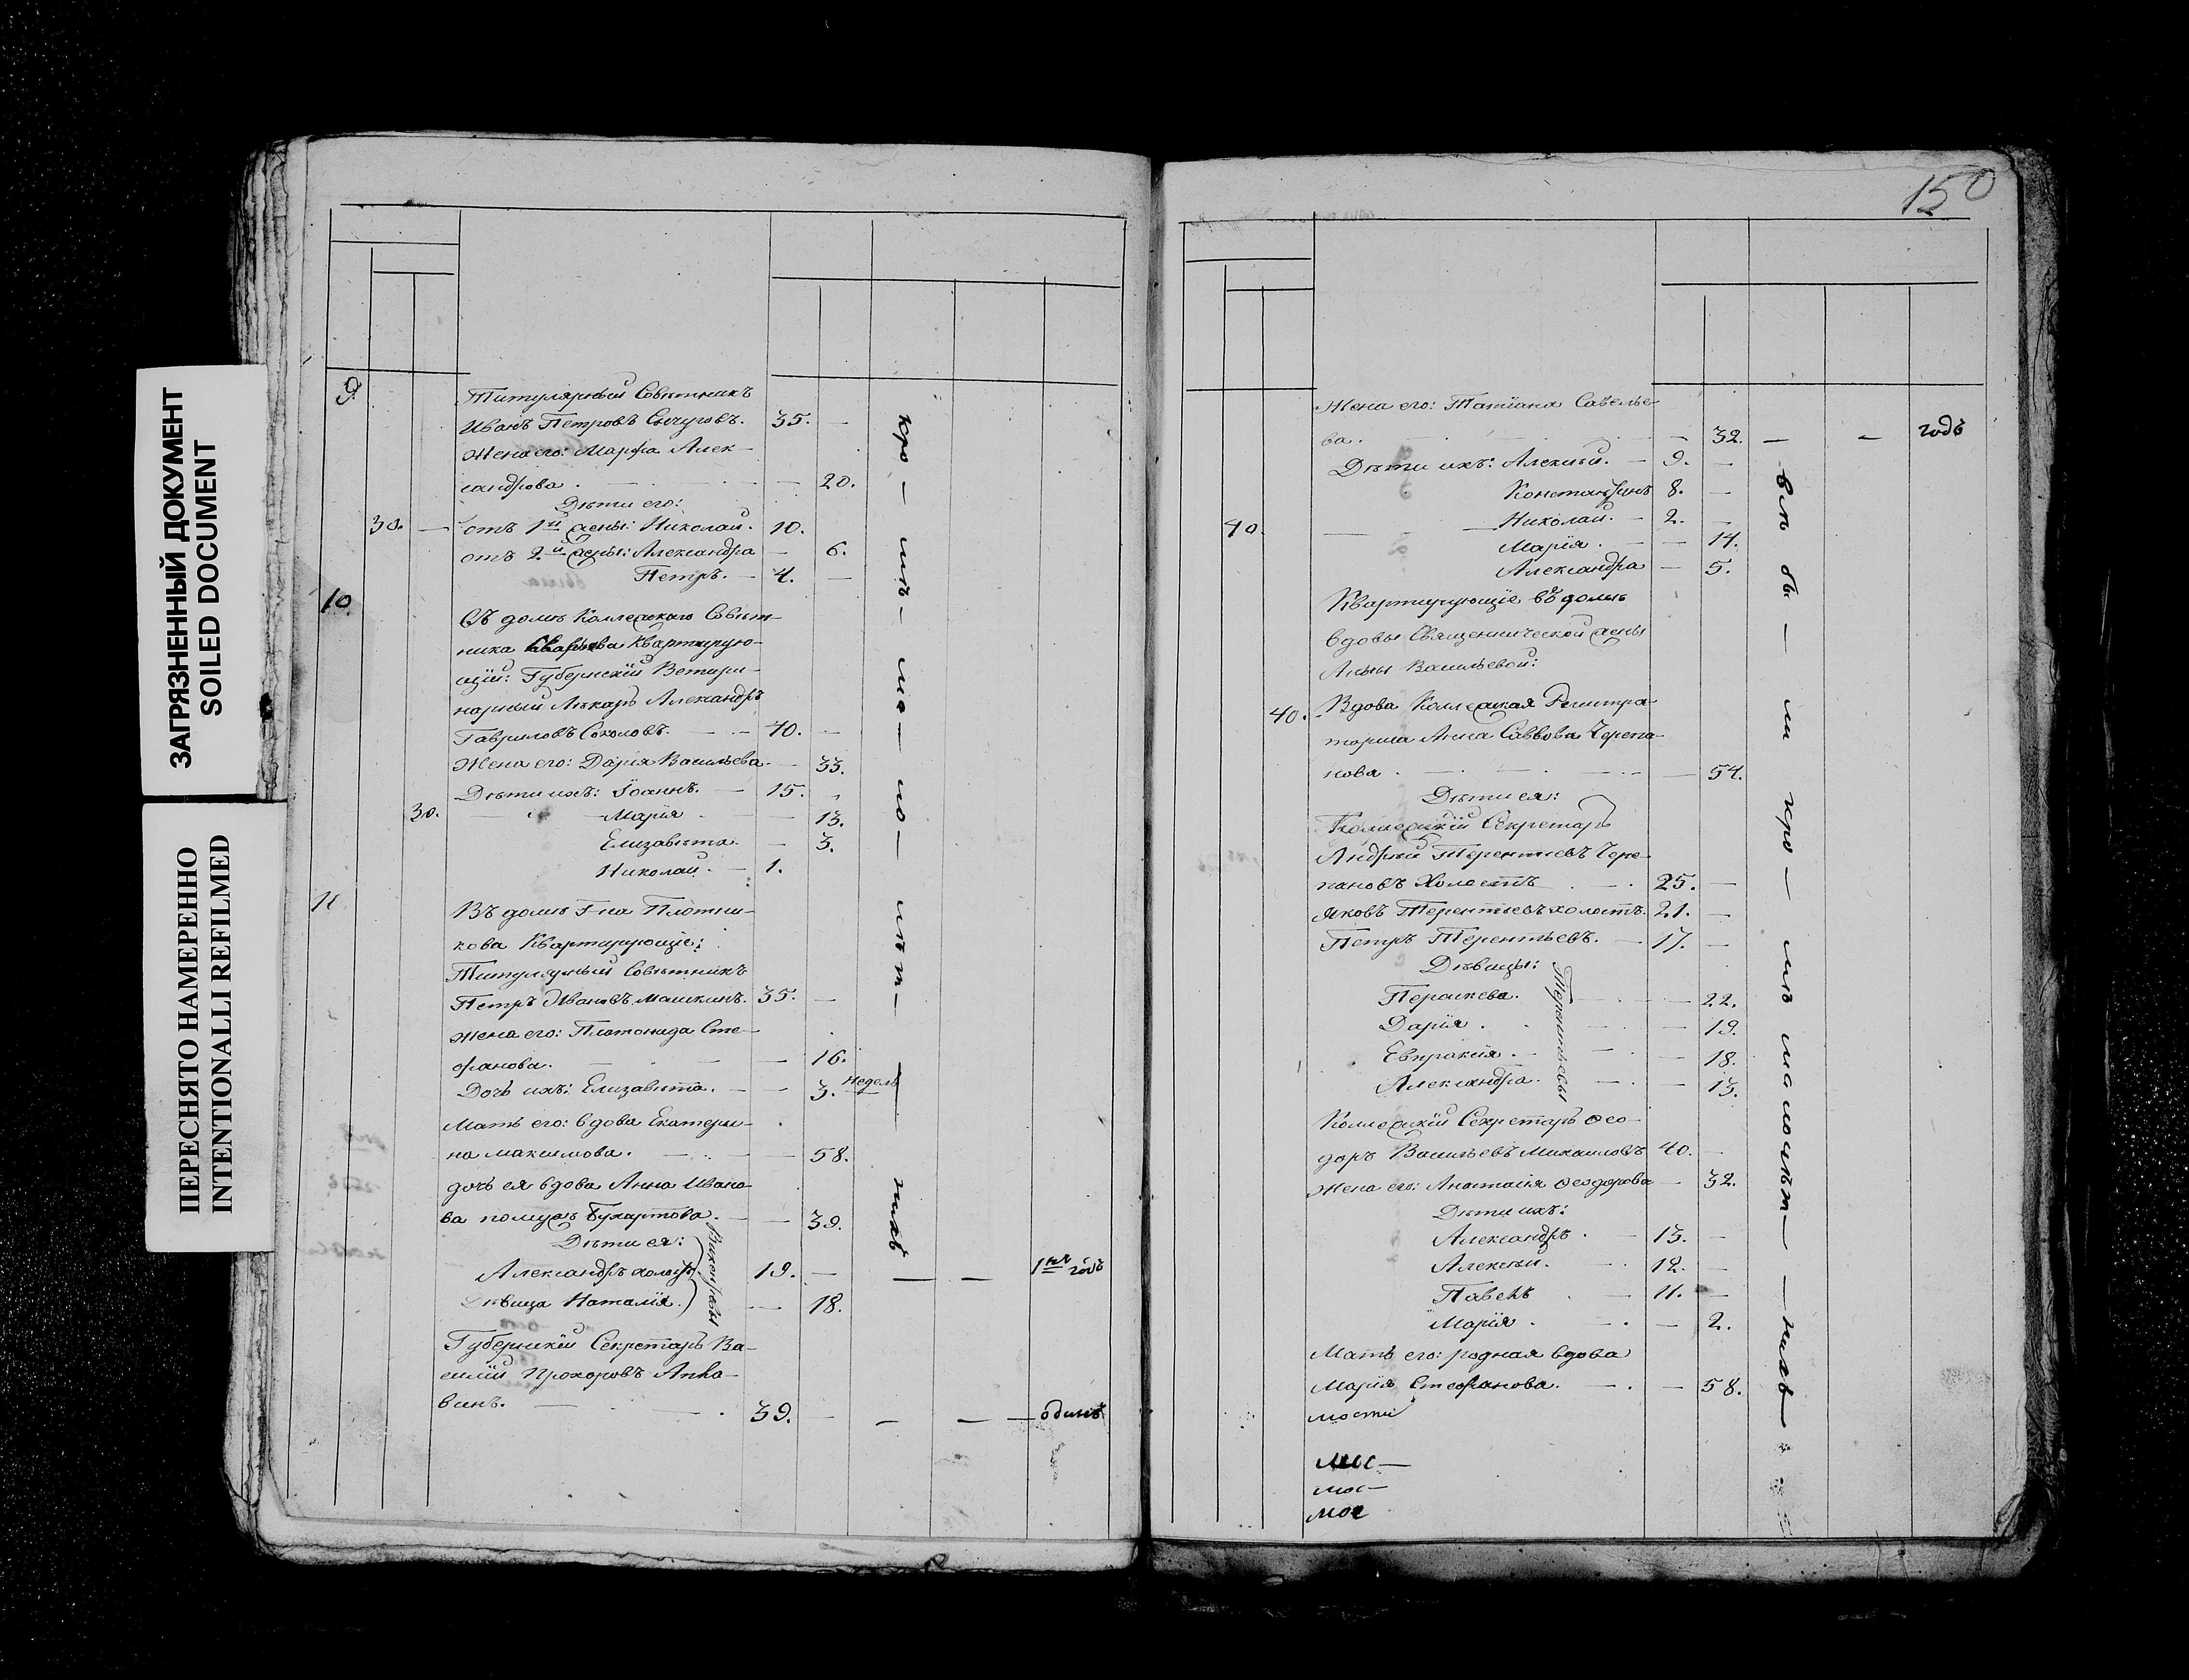 ЗАГРЯЗНЕННЫЙ ДОКУМЕНТ
SOILED DOCUMENT
ПЕРЕСНЯТО НАМЕРЕННО
INTENTIONALLI REFILMED
9.
Титулярный Совѣтникъ
Иванъ Петровъ Сычуговъ. 35. —
Жена его: Марфа Алек-
сандрова. — 20.
Дѣти его:
30. — отъ 1й жены: Николай. 10.
отъ 2й жены: Александра — 6.
Петръ. — 4. —
10.
Въ домѣ Коллежскаго Совѣт-
ника Квартирую-
щій: Губернскій Ветери-
нарный Лѣкарь Александръ
Гавриловъ Соколовъ. — 40. —
Жена его: Дарія Васильева. — 33.
Дѣти ихъ: Іоаннъ. — 15.
30. — Марія — 13.
Елизавета. — 3.
Николай. — 1.
11
Въ домѣ Г-на Плотни-
кова Квартирующіе:
Титулярный Совѣтникъ
Петръ Ивановъ Машкинъ. 35. —
Жена его: Платонида Сте-
фанова. — 16.
Дочь ихъ: Елизавета. — 3. Недель
Мать его: вдова Екатери-
на Максимова. — 58.
дочь ея вдова Анна Ивано-
ва по мужѣ Бухартова. — 39.
Дѣти ея:
Александръ холостъ 19. — — — 1й годъ
Дѣвица Наталія. — 18.
Губернскій Секретарь Ва-
силій Прохоровъ
винъ. — 39. — — — одинъ
150
Жена его: Татіана Савелье-
ва. — 32. — — годъ
Дѣти ихъ: Алексѣй. — 9. —
Константинъ 8. —
40. — Николай. — 2. —
Марія. — 14.
Александра — 5.
Квартирующіе въ домѣ
вдовы Священнической жены
Анны Васильевой:
40. Вдова Коллежская Регистра-
торша Анна Саввова Черепа-
нова. — 54.
Дѣти ея:
Коллежскій Секретарь
Андрей Терентьевъ Чере-
пановъ Холостъ — 25. —
Яковъ Терентьевъ холостъ. 21. —
Петръ Терентьевъ. — 17. —
Дѣвицы:
Параскева. — 22.
Дарія. — 19.
Евпраксія. — 18.
Александра. — 13.
Терентьевы
Коллежскій Секретарь Ѳео-
доръ Васильевъ Михайловъ 40. —
Жена его: Анастасія Ѳеодорова — 32.
Дѣти ихъ:
Александръ. — 13. —
Алексѣй. — 12. —
Павелъ — 11. —
Марія. — 2.
Мать его: родная вдова
Марія Стефанова. — 58.
мости
мос-
мос-
мос